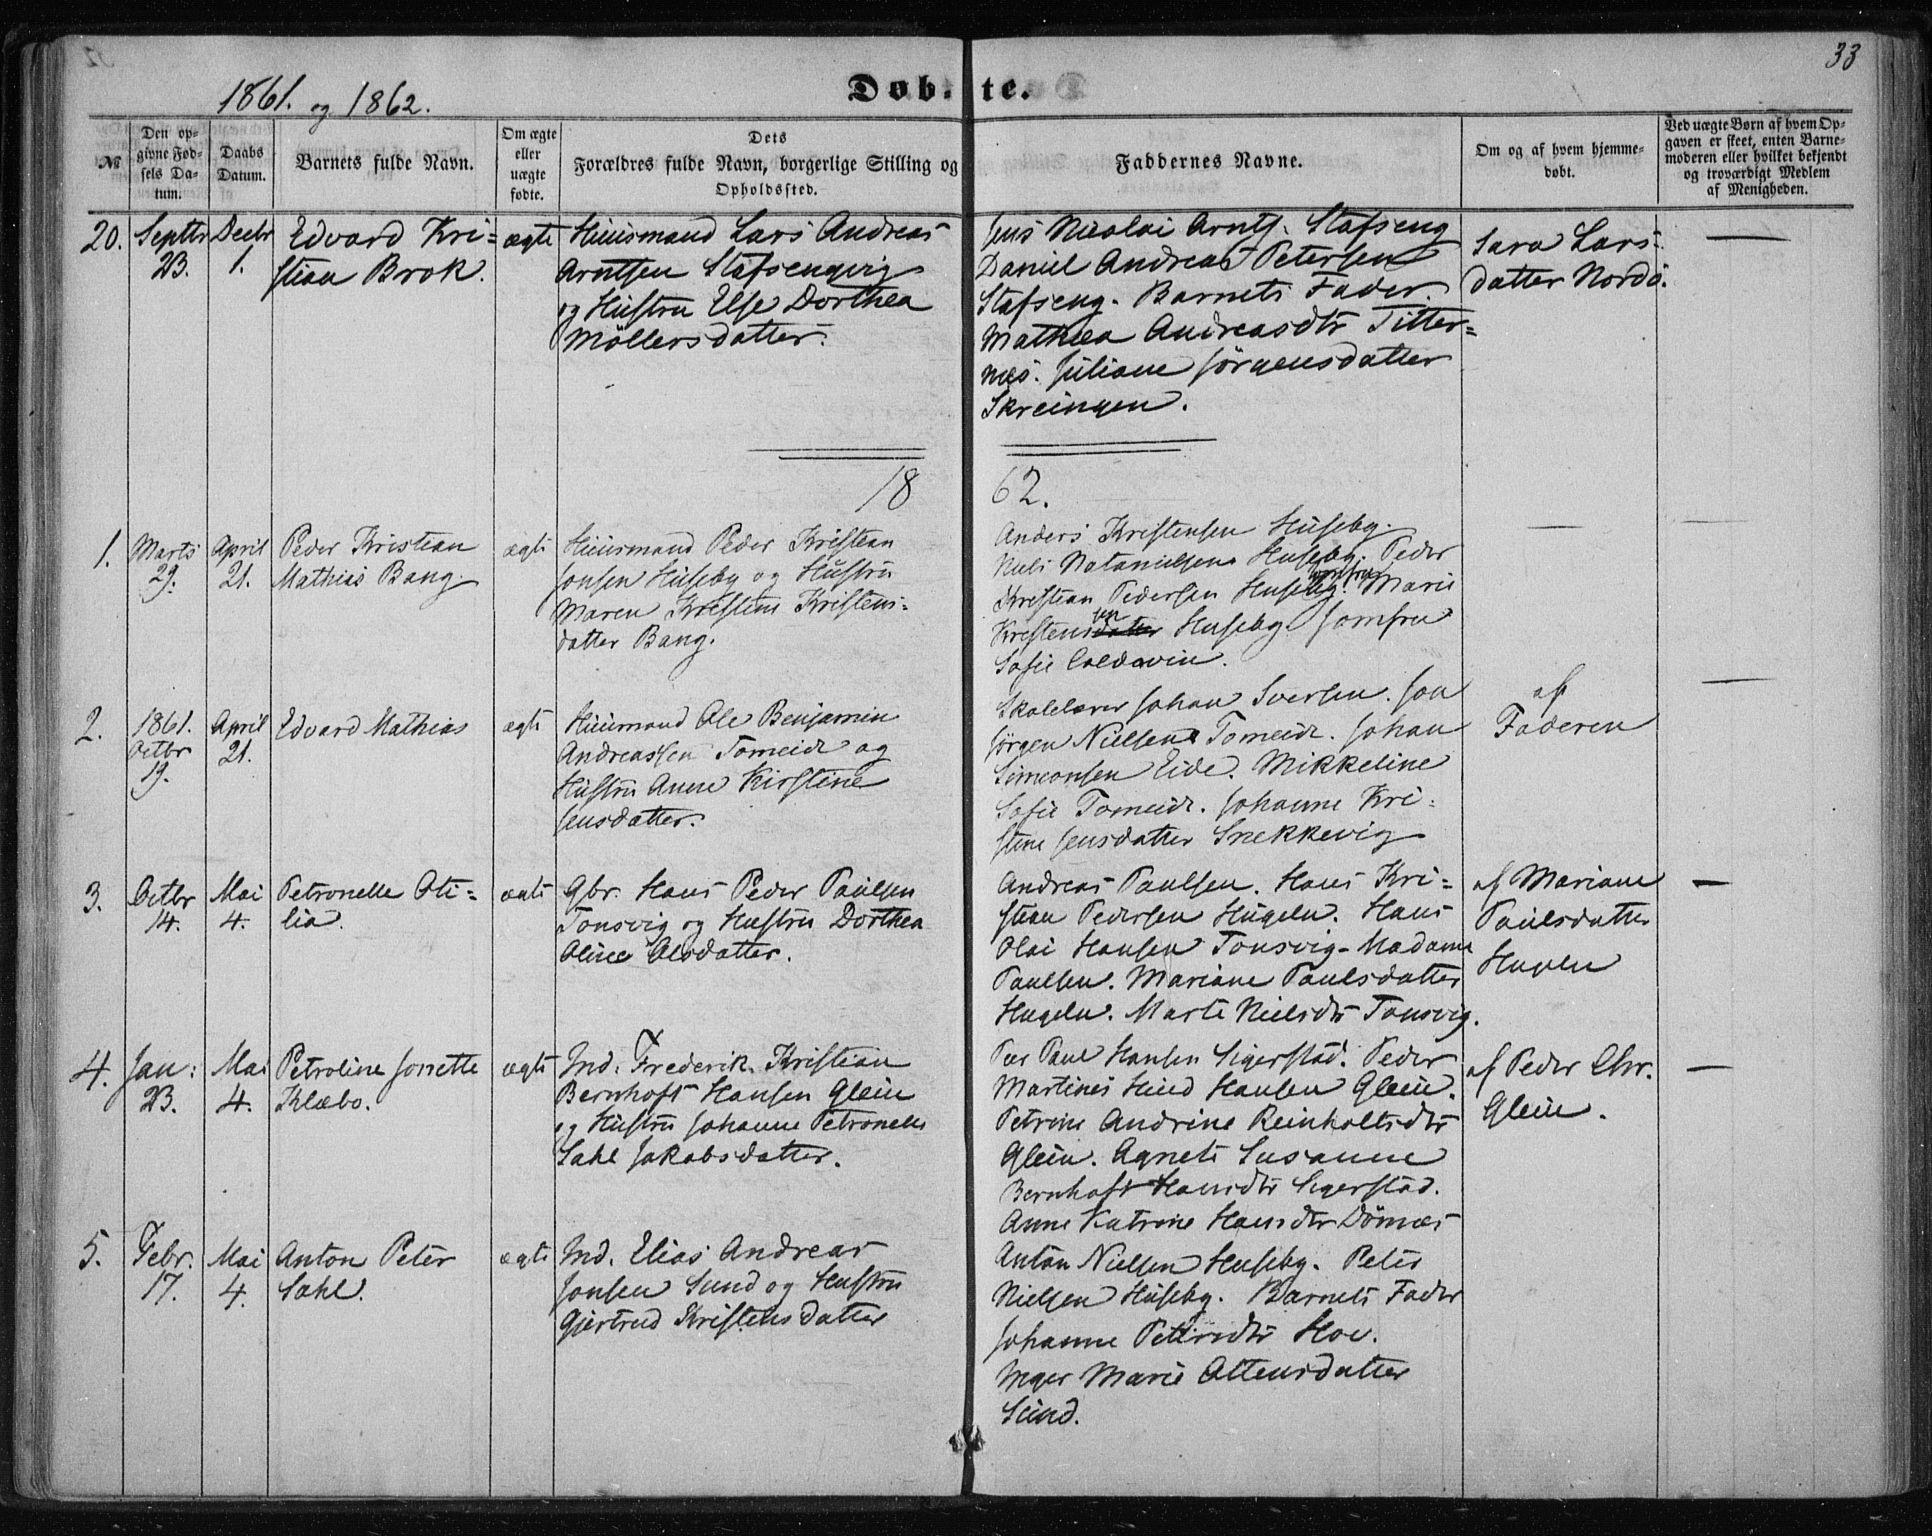 33
1861. og 1862.
Døbte.
№
Den opgivne Fødsels Datum.
Daabs Datum.
Barnets fulde Navn.
Om ægte eller uægte fødte.
Dets Forældres fulde Navn, borgerlige Stilling og Opholdssted.
Faddernes Navne.
Om og af hvem hjemmedøbt.
Ved uægte Børn af hvem Opgaven er skeet, enten Barnemoderen eller hvilket bekjendt og troværdigt Medlem af Menigheden.
20.
Septbr 23.
Decbr 1.
Edvard Kri=
stian Brok.
ægte
Huusmand Lars Andreas
Arntsen Stafsengvig
og Hustru Else Dorthea
Möllersdatter.
Jens Nicolai Arnts. Stafseng
Daniel Andreas Petersen
Stafseng. Barnets Fader.
Mathea Andreasdtr Titter=
næs. Juliane Jörgensdatter
Skreingen.
Sara Lars=
datter Nordö.
1862.
1.
Marts 29.
April 21.
Peder Kristian
Mathias Bang.
ægte
Huusmand Peder Kristian
Jonsen Huseby og Hustru
Maren Kristens=
datter Bang.
Anders Kristensen Huseby.
Nils Natanielsen Huseby. Peder
Kristian Pedersen Huseby. Jomfru Marie
Kristensen Huseby Jomfru
Sofie Coldevin.
2.
1861. Octbr 19.
April 21.
Edvard Mathias
ægte
Huusmand Ole Benjamin
Andreassen Tomeide og
Hustru Anne Kirstine
Jensdatter.
Skolelærer Johan Iversen. Jon
Jörgen Nielsen Tomeide. Johan
Simeonsen Eide. Mikkeline
Sofie Tomeide. Johanne Kri=
stine Jensdatter Snekkevig
af
Faderen
3.
Octbr 14.
Mai 4.
Petronelle Oti=
lia.
ægte
Gbr. Hans Peder Paulsen
Tonsvig og Hustru Dorthea
Oline Olsdatter.
Andreas Paulsen. Hans Kri=
stian Pedersen Hugeln. Hans
Olai Hansen Tonsvig. Madame
Paulsen. Mariane Paulsdatter
Hugeln. Marte Nielsdtr Tonsvig.
af Mariane
Paulsdatter
Hugeln
4.
Jan: 23.
Mai 4.
Petroline Jonette
Klæbo.
ægte
Ind. Frederik Kristian
Bernhoft Hansen Glein
og Hustru Johanne Petronelle
Sahl Jakobsdatter.
Per Paul Hansen Segerstad. Peder
Martines Hind Hansen Glein.
Petrine Andrine Reinholtsdtr
Glein. Agnete Susanne
Bernhoft Hansdtr Segerstad.
Anne Katrine Hansdtr Dömæs
af Peder Chr.
Glein.
5.
Febr. 17.
Mai 4.
Anton Peter
Sahl.
ægte
Ind. Elias Andreas
Jonsen Sund og Hustru
Gjertrud Kristensdatter
Anton Nielsen Huseby. Peter
Nielsen Huseby. Barnets Fader
Johanne Petersdtr Hov.
Inger Marie Ottensdatter
Sund.